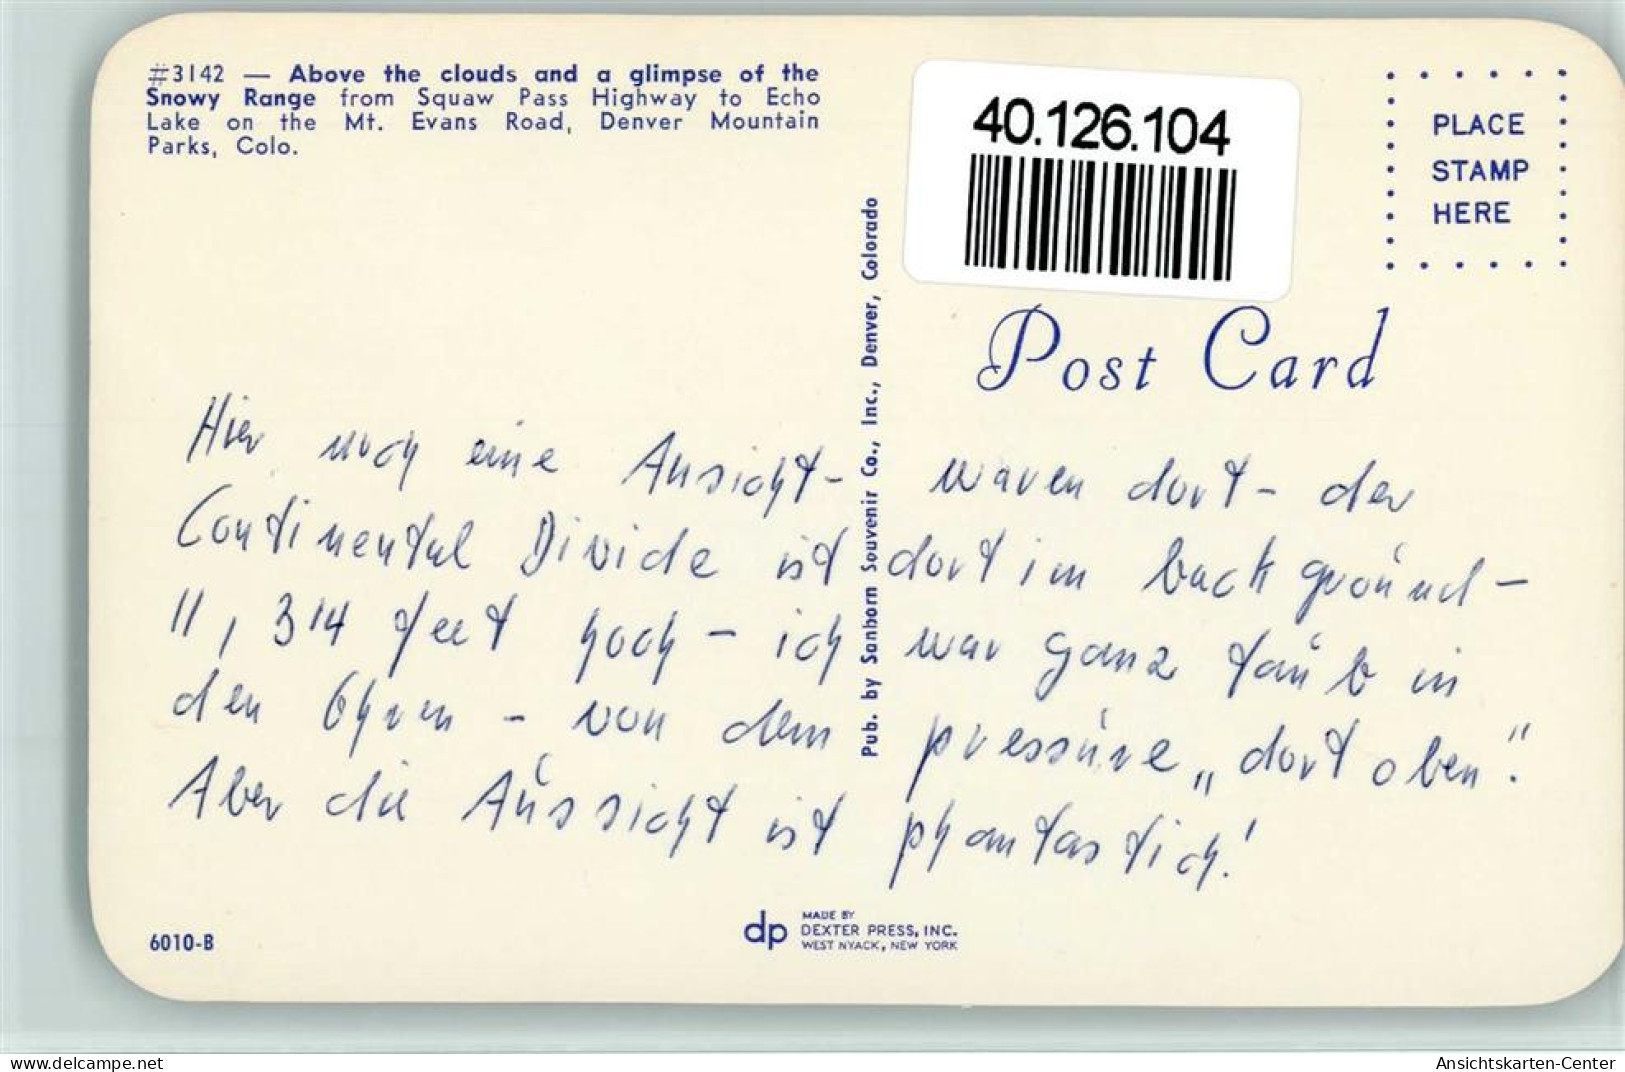 #3142 — Above the clouds and a glimpse of the
Snowy Range from Squaw Pass Highway to Echo
Lake on the Mt. Evans Road, Denver Mountain
Parks, Colo.
40.126.104
PLACE
STAMP
HERE
Post Card
Pub. by Sanborn Souvenir Co., Inc., Denver, Colorado
Hier noch eine Ansicht - waren dort - der
Continental Divide ist dort im back groünd -
11, 314 feet hoch - ich war ganz taub in
den Ohren - von dem pressüre „dort oben".
Aber die Aussicht ist phantastich!
6010-B
dp
MADE BY
DEXTER PRESS, INC.
WEST NYACK, NEW YORK
the-saleroom.com
Ansichtskarten-Center